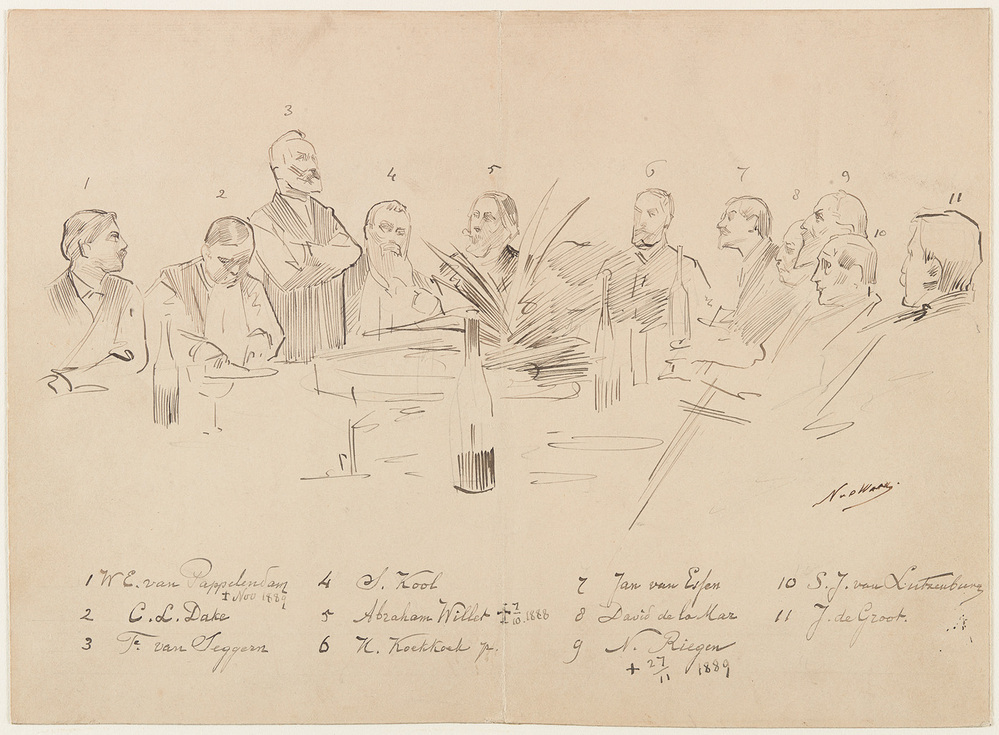 3
1
2
4
5
6
7
8
9
10
11
N v d Waay
1 W E. van Pappelendam
† Nov 1889
2 C. L. Dake
3 Fe. van Seggern
4 S. Kool
5 Abraham Willet † 7/10 1888
6 H. Koekkoek jr.
7 Jan van Essen
8 David de la Mar
9 N. Riegen
† 27/11 1889
10 S. J. van Lutzenburg
11 J. de Groot.